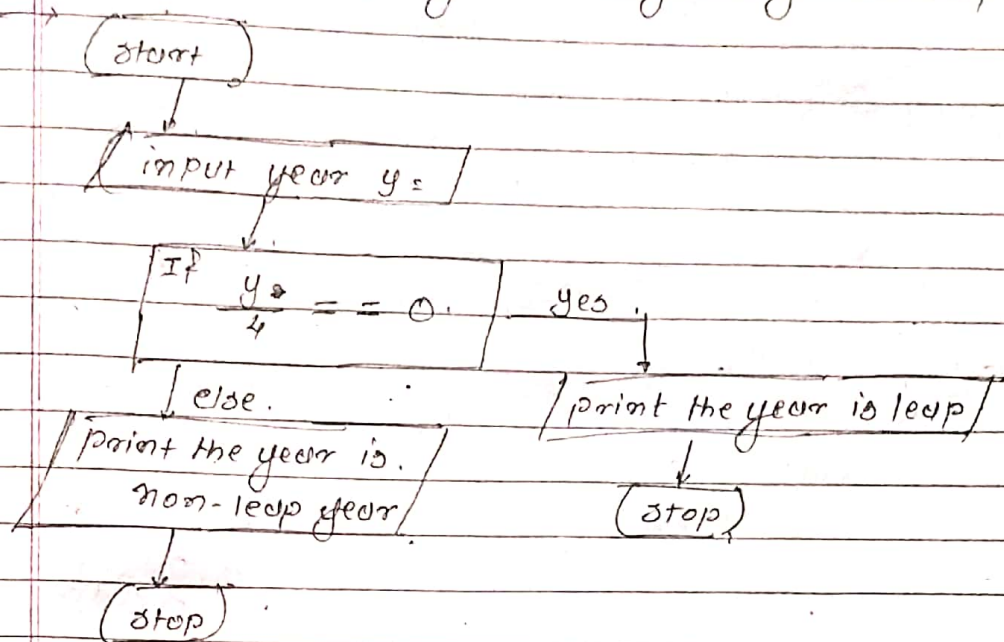 start
input year y =
If
y
4
= = 0.
yes.
else.
print the year is leap
print the year is.
non-leap year
stop
stop